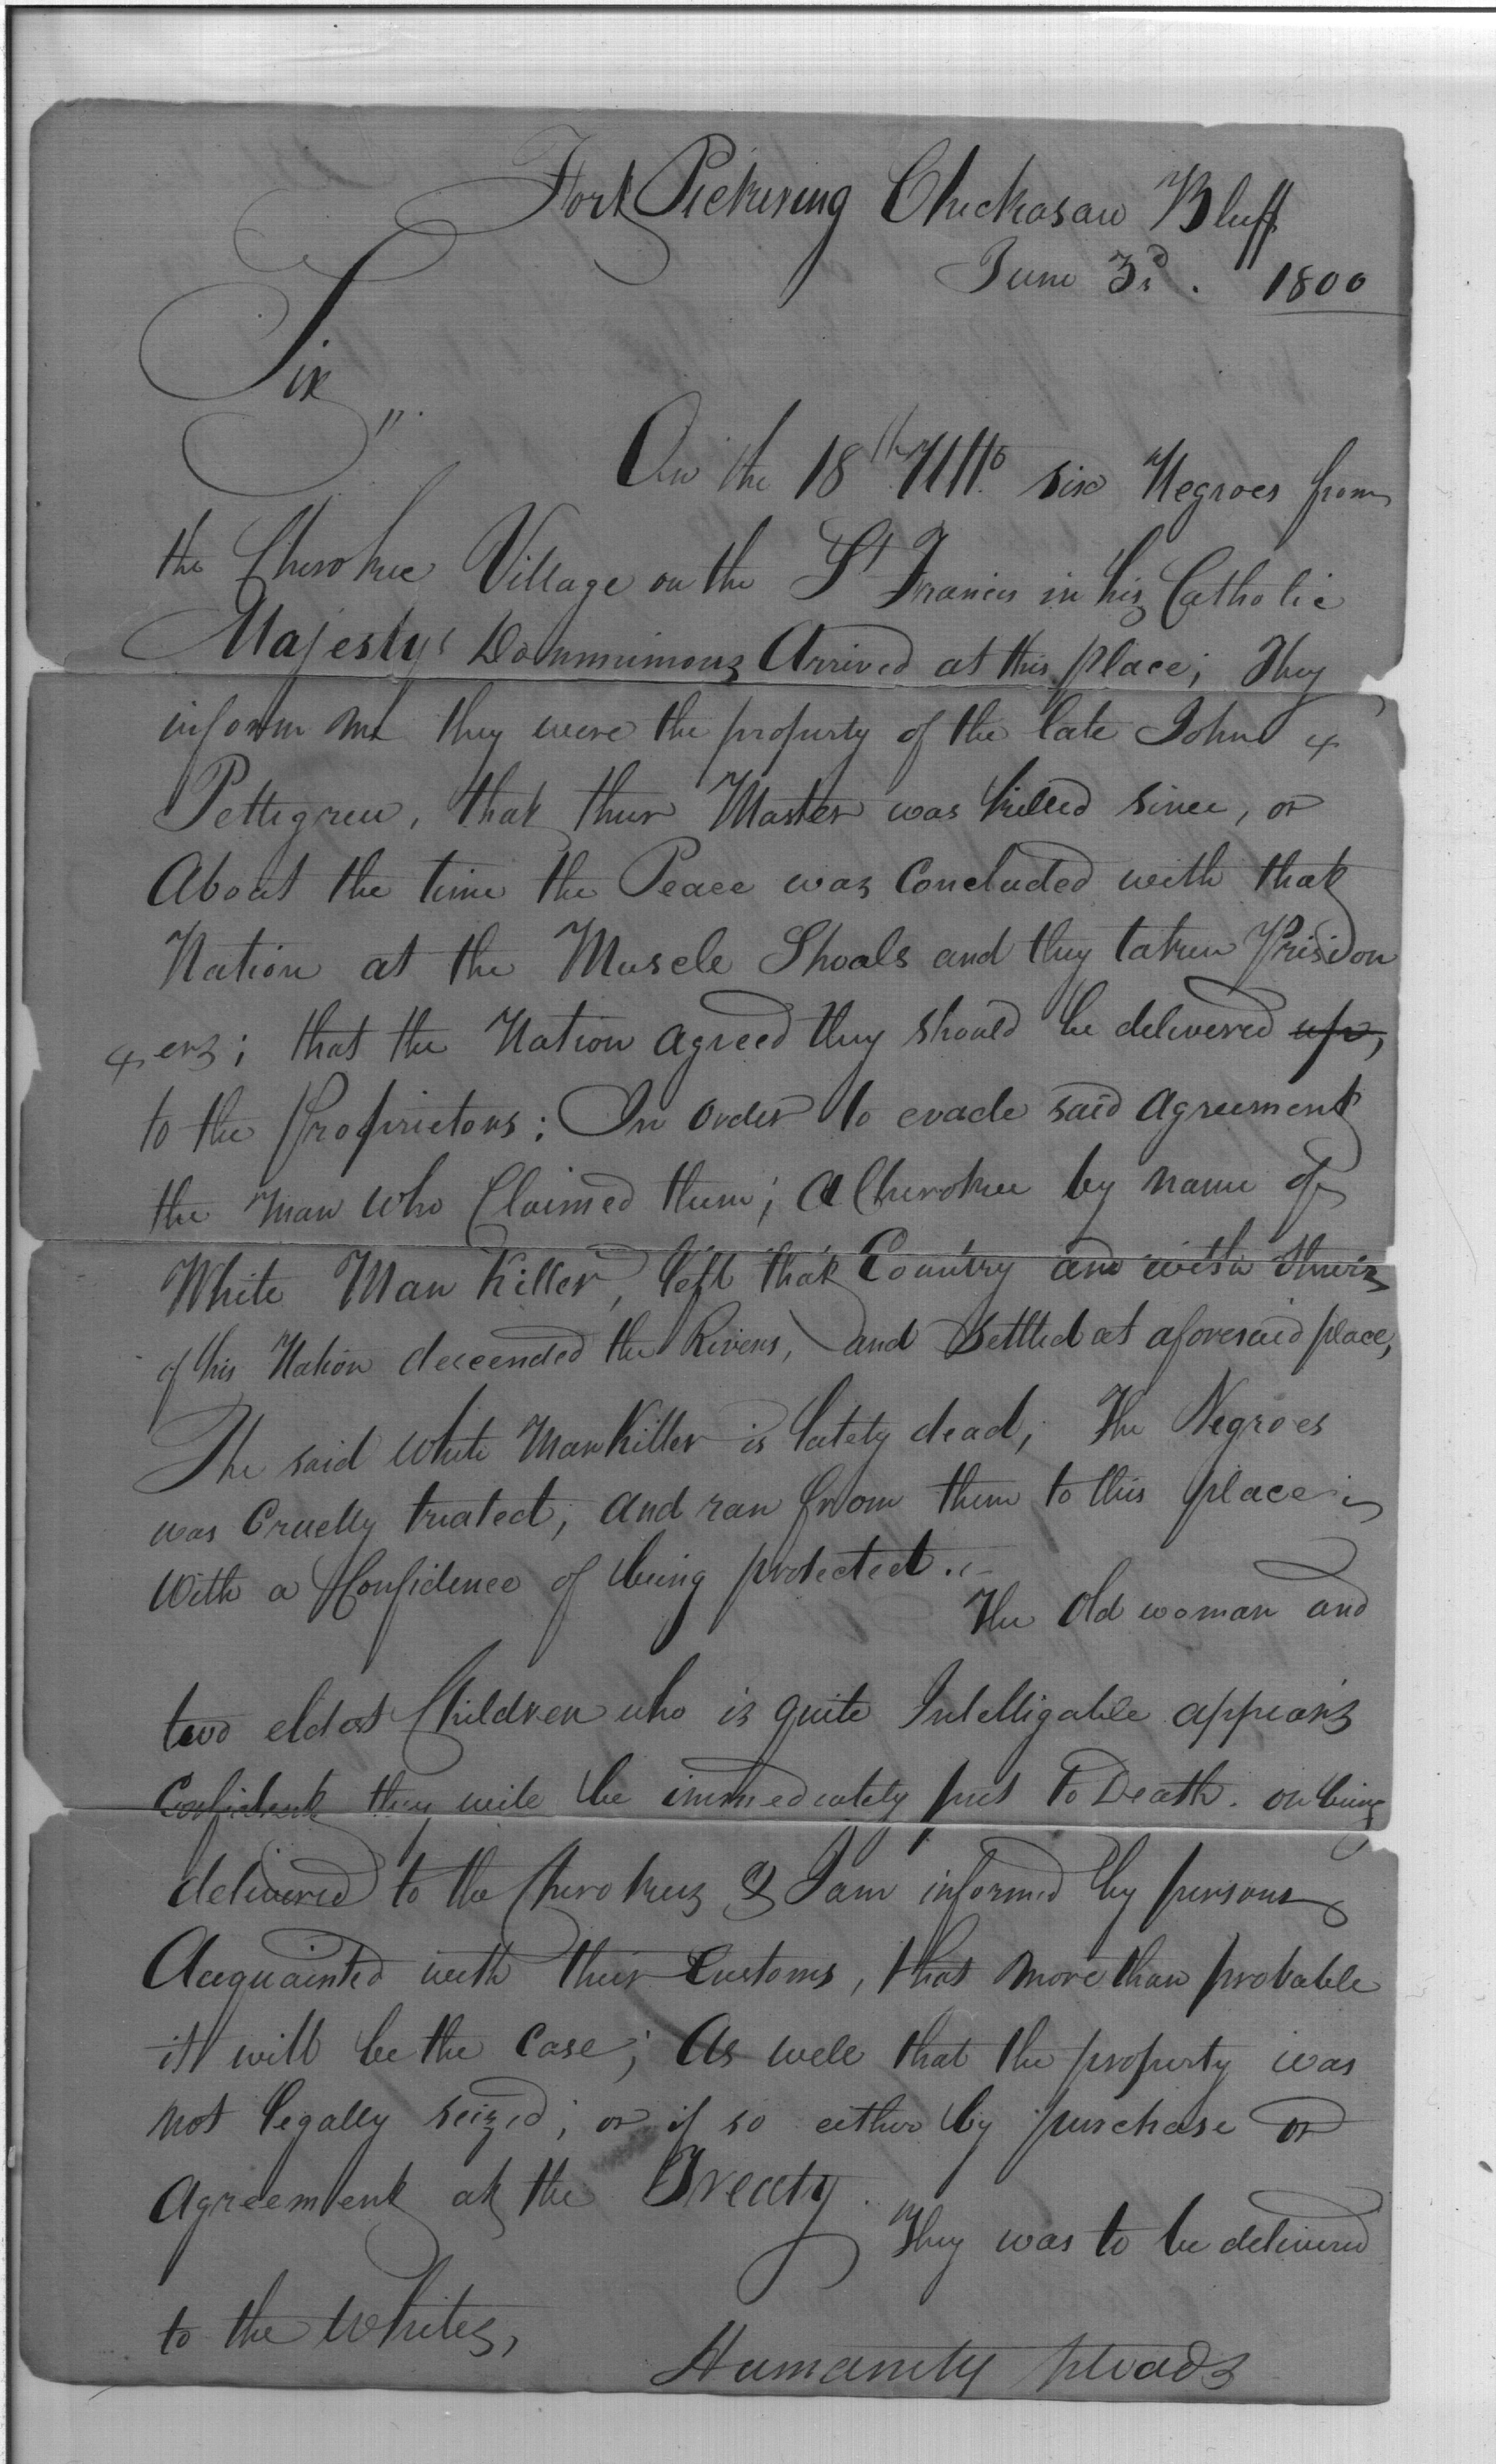 Fort Pickering Chickasaw Bluff
June 3d. 1800
Sir
On the 18th Ulto six Negroes from
the Cherokee Village on the St Francis in his Catholic
Majestys Domminions Arrived at this place; They
inform me they were the property of the late John
Pettigrew, that their Master was killed since, or
About the time the Peace was Concluded with that
Nation at the Muscle Shoals and they taken Prison
ers; that the Nation agreed they should be delivered up,
to the Proprietors: In order to evade said Agreement
the Man who Claimed them; a Cherokee by name of
White Man Killer, left that Country and with
of his Nation deceended the Rivers, and settled at aforesaid place,
The said White Man Killer is lately dead; The Negroes
was Cruelly treated, and ran from them to this place
With a Confidence of being protected.
The Old woman and
two eldest Children who is quite Intelligable appears
Confident they will be immediately put to Death. on being
delivered to the Cherokees & I am informed by persons
Acquainted with their Customs, that more than probable
it will be the case; As well that the property was
not legally seized; or if so either by purchase or
Agreement at the Treaty.
They was to be delivered
to the Whites,
Humanity pleads